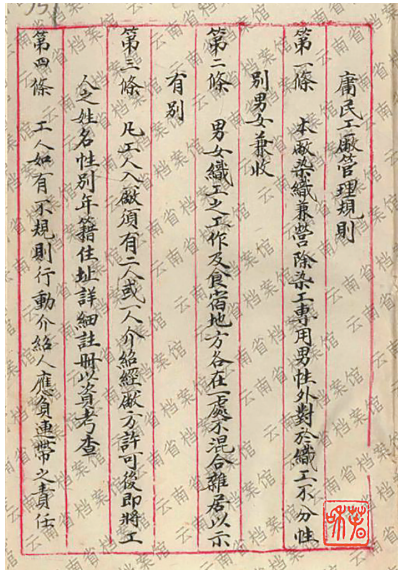 庸民工廠管理規則
第一條　本廠染織兼營除染工專用男性外對於織工不分性
別男女兼收
第二條　男女織工之工作及食宿地方各在一處不混合雜居以示
有别
第三條　凡工人入廠須有二人或一人介紹經廠方許可後即將工
人之姓名性別年籍住址詳細註冊以資考查
第四條　工人如有不規則行動介紹人應負連帶之責任
云南省档案馆